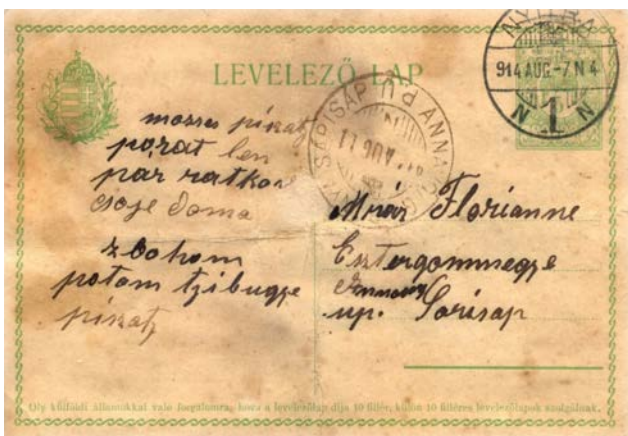 LEVELEZŐ LAP
NYITRA
914 AUG -7 N 4
N 1 N
ANNAVÖLGY SÁRISÁP P.U.
AUG 11
mosses piszaty
pozat len
par ratkov
csoje doma
z bohom
potom tzi bugye
piszaty
Florianne
Esztergommegye
up. Sárisáp
Oly külföldi államokkal való forgalomra, hova a levelezőlap díja 10 fillér, külön 10 filléres levelezőlapok szolgálnak.